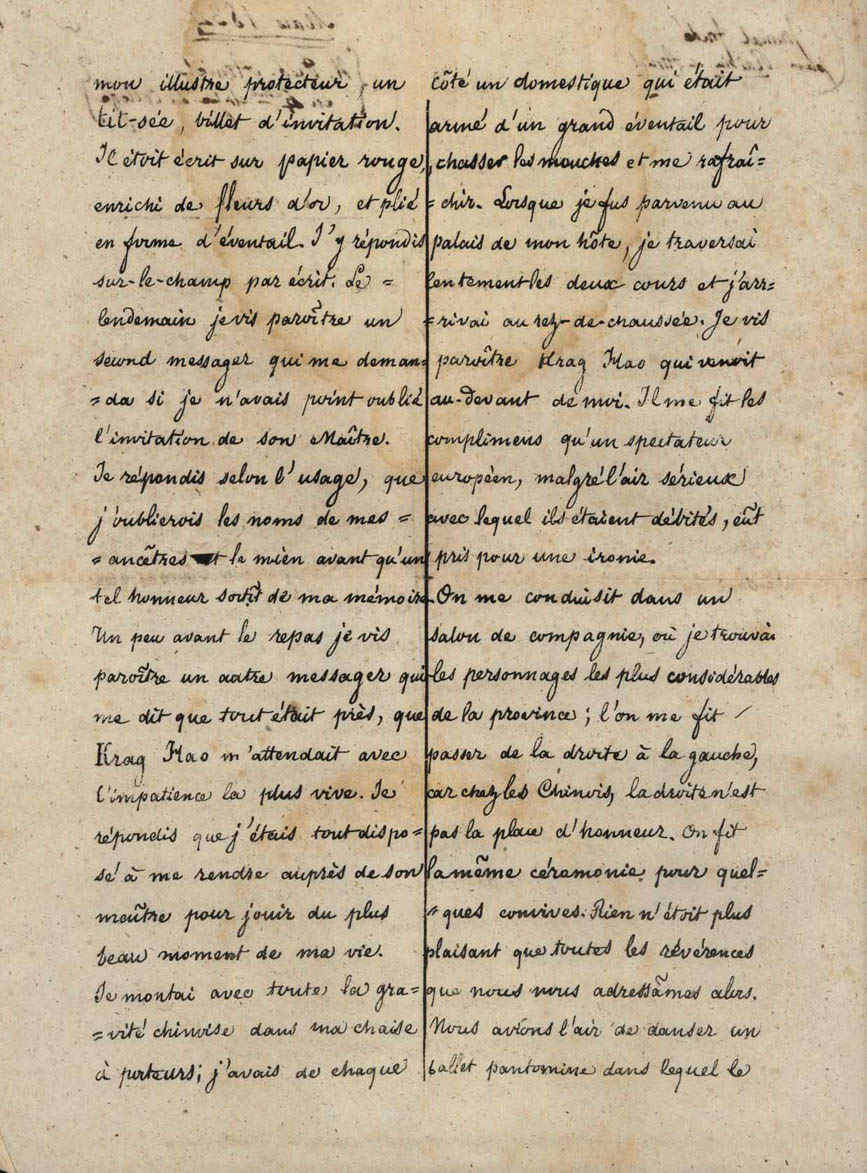 mon illustre protecteur, un
tit-sée, billet d'invitation.
Il étoit écrit sur papier rouge,
enrichi de fleurs d'or, et plié
en forme d'éventail. J'y répondis
sur-le-champ par écrit. Le =
lendemain je vis paroître un
second messager qui me deman=
=da si je n'avais point oublié
l'invitation de son Maître.
Je répondis selon l'usage, que
j'oublierois les noms de mes =
=ancêtres et le mien avant qu'un
tel honneur sortît de ma mémoire.
Un peu avant le repas je vis
paroître un autre messager qui
me dit que tout était près, que
Kraq Hao m'attendait avec
l'impatience la plus vive. Je
répondis que j'étais tout dispo=
sé à me rendre auprès de son
maître pour jouir du plus
beau moment de ma vie.
Je montai avec toute la gra=
=vité chinoise dans ma chaise
à porteurs; j'avais de chaque
côté un domestique qui était
armé d'un grand éventail pour
chasser les mouches et me rafraî=
=chir. Lorsque je fus parvenu au
palais de mon hôte, je traversai
lentement les deux cours et j'arr=
=rivai au rez-de-chaussée. Je vis
paroître Kraq Hao qui venoit
au-devant de moi. Il me fit les
complimens qu'un spectateur
européen, malgré l'air sérieux
avec lequel ils étaient débités, eût
pris pour une ironie.
On me conduisit dans un
salon de compagnie, où je trouvai
les personnages les plus considérables
de la province; l'on me fit
passer de la droite à la gauche,
car chez les Chinois, la droite n'est
pas la place d'honneur. On fit
la même céremonie pour quel=
=ques convives. Rien n'étoit plus
plaisant que toutes les révérences
que nous nous adressâmes alors.
Nous avions l'air de danser un
ballet pantomine dans lequel le